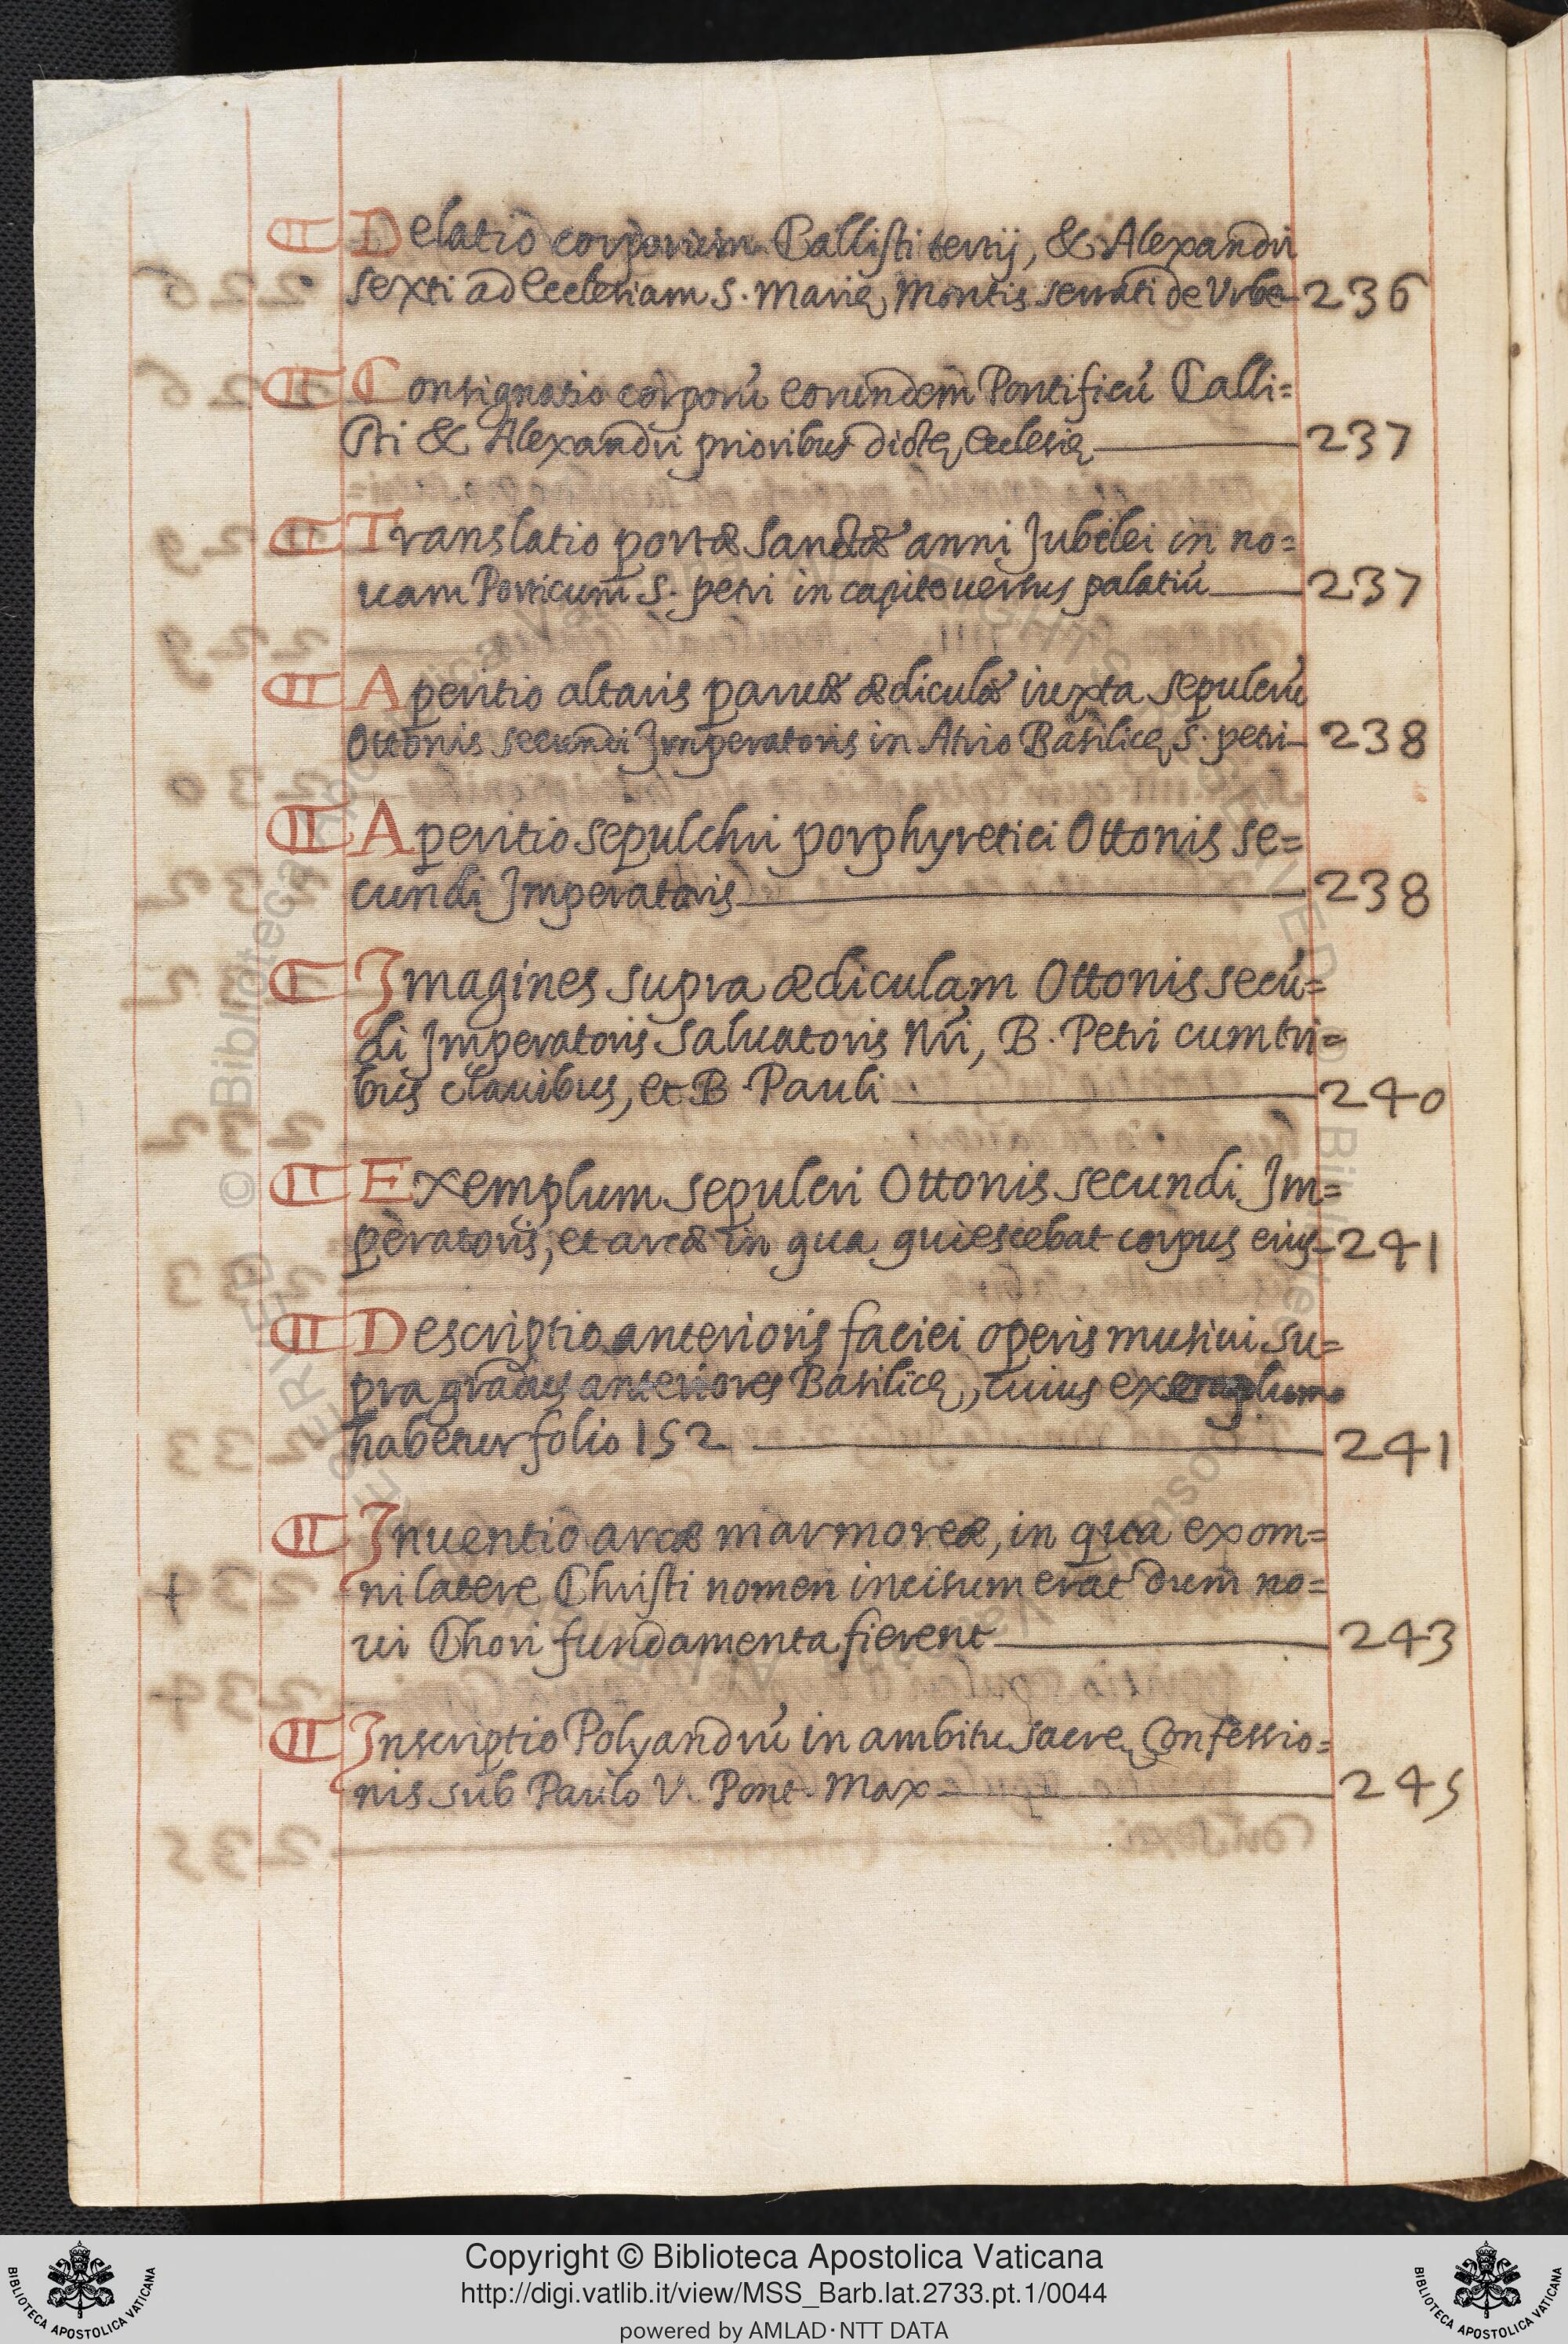 ¶ Delatio corporum Callisti tertij, & Alexandri
sexti ad Ecclesiam S. Marię Montis serrati de Vrbe 236
¶ Consignatio corporũ eorundem Pontificũ Calli=
sti & Alexandri prioribus dictę Ecclesię 237
¶ Translatio portæ Sanctæ anni Jubilei in no=
uam Porticum S. petri in capite uersus palatiũ 237
¶ Aperitio altaris paruæ ædiculæ iuxta sepulcrũ
Ottonis secundi Jmperatoris in Atrio Basilicę S. petri 238
¶ Aperitio sepulchri porphyretici Ottonis se=
cundi Jmperatoris 238
¶ Jmagines supra ædiculam Ottonis secũ=
di Jmperatoris Saluatoris Nr̃i, B. Petri cum tri=
bus clauibus, et B. Pauli 240
¶ Exemplum sepulcri Ottonis secundi Jm=
peratoris, et arcæ in qua quiescebat corpus eius 241
¶ Descriptio anterioris faciei operis musiui su=
pra gradus anteriores Basilicę, cuius exemplum
habetur folio 152 241
¶ Jnuentio arcæ marmoreæ, in qua ex om=
ni latere Christi nomen incisum erat dum no=
ui Chori fundamenta fierent 243
¶ Jnscriptio Polyandrũ in ambitu sacrę Confessio=
nis sub Paulo V. Pont. Max 245
Copyright © Biblioteca Apostolica Vaticana
http://digi.vatlib.it/view/MSS_Barb.lat.2733.pt.1/0044
powered by AMLAD·NTT DATA
BIBLIOTECA APOSTOLICA VATICANA
BIBLIOTECA APOSTOLICA VATICANA